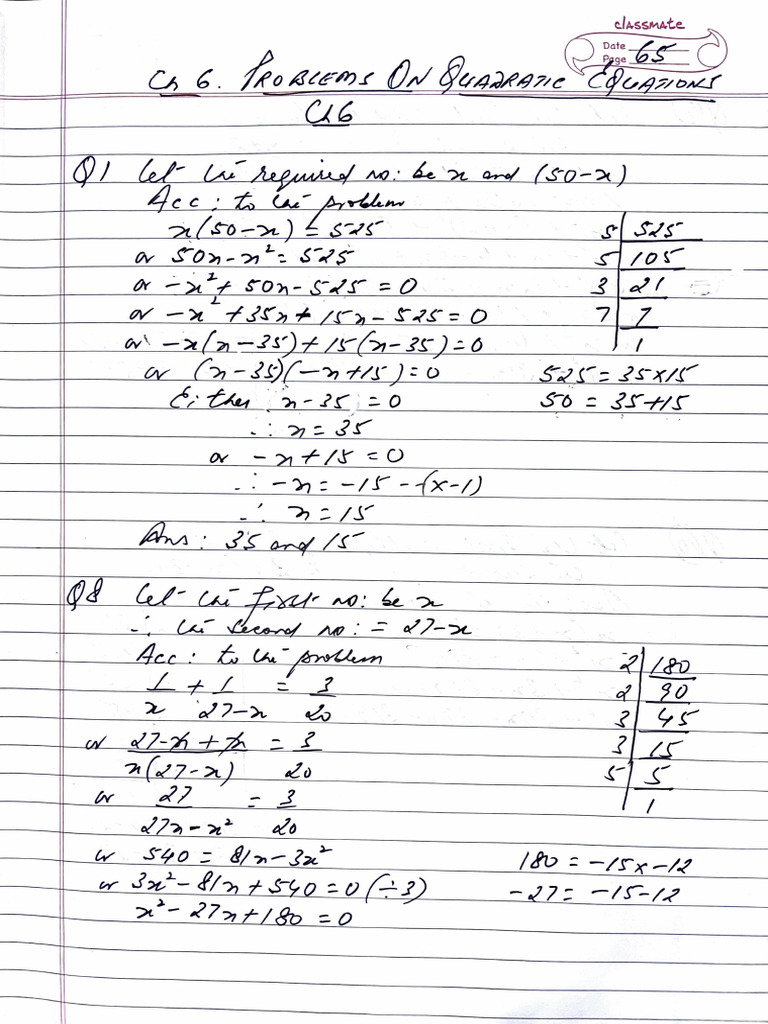 classmate
Date
Page 65
Ch 6. PROBLEMS ON QUADRATIC EQUATIONS
Ch6
Q1 Let the required no: be x and (50-x)
Acc: to the problem
x(50-x) = 525
or 50x-x² = 525
or -x² + 50x - 525 = 0
or -x² + 35x + 15x - 525 = 0
or -x(x-35) + 15(x-35) = 0
or (x-35)(-x+15) = 0
Either x-35 = 0
∴ x = 35
or -x+15 = 0
∴ -x = -15 -(x-1)
∴ x = 15
Ans: 35 and 15
5 | 525
5 | 105
3 | 21
7 | 7
1
525 = 35×15
50 = 35+15
Q8 Let the first no: be x
∴ the second no: = 27-x
Acc: to the problem
1/x + 1/27-x = 3/20
or 27-x+x/x(27-x) = 3/20
or 27/27x-x² = 3/20
or 540 = 81x-3x²
or 3x²-81x+540 = 0 (÷3)
x²-27x+180 = 0
2 | 180
2 | 90
3 | 45
3 | 15
5 | 5
1
180 = -15×-12
-27 = -15-12